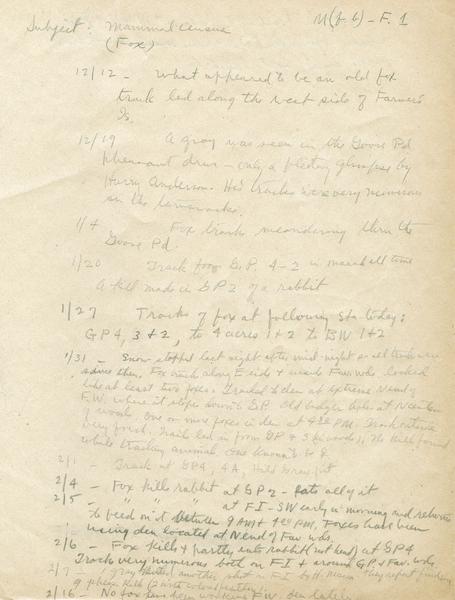 M(f-b)-F.1
Subject: Mammal Census
(Fox)
12/12 - What appeared to be an old fox
track led along the west side of Farmers
Is.
12/19 A gray was seen in the Goose Pd
pheasant drive - only a fleeting glimpse by
Harry Anderson. His tracks were very numerous
in the
1/4 Fox track meandering thru the
Goose Pd.
1/20 Track from G.P. 4-2 in marsh all time
A kill made in GP2 of a rabbit
1/27 Tracks of fox at following sta. today:
GP4, 3+2, to 4 acres 1+2 to BW 1+2
1/31 - Snow stopped last night after mid-night so all tracks are
Fox track along E side + inside Fav. wds. looked
like at least two foxes. Trailed to den at extreme N end of
F.W. where it slopes down to GP. Old badger hole at N
of woods. One or more foxes in den at 4:30 PM.
very fresh. Trail led in from GP + No kill found
while trailing animal.
2/1 - Track at GP4, 4A,
2/4 - Fox kills rabbit at GP2 - eats all of it
2/5 - " " " at F.I.-SW early in morning and returns
to feed on it between 9 AM + 4:00 PM. Foxes have been
using den located at N end of Fav. wds.
2/6 - Fox kills + partly eats rabbit (not hind) at GP4
Track very numerous both on F.I. + around GP + Fav. wds.
2/7 - 1 gray another shot on F.I. by H. They report finding
9 pheas. kills
2/16 - No fox